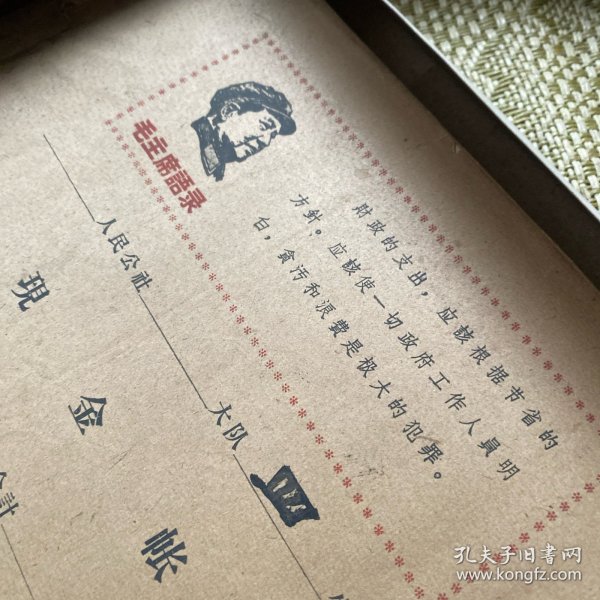 毛主席語录
財政的支出，应該根据节省的
方針。应該使一切政府工作人員明
白，貪污和浪費是极大的犯罪。
人民公社 大队 四
現金帐
会計
孔夫子旧书网
www.kongfz.com